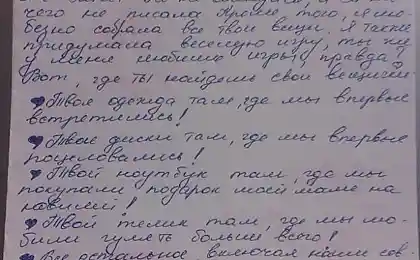 чего не писала. Кроме того, я лю-
безно собрала все твои вещи. Я также
придумала веселую игру, ты же
у меня любишь игры, правда?
Вот, где ты найдешь свои вещички
♥ Твоя одежда там, где мы впервые
встретились!
♥ Твои диски там, где мы впервые
поцеловались!
♥ Твой ноутбук там, где мы
покупали подарок моей маме на
юбилей!
♥ Твой телик там, где мы лю-
били гулять больше всего!
♥ Все остальное, включая наши сов-